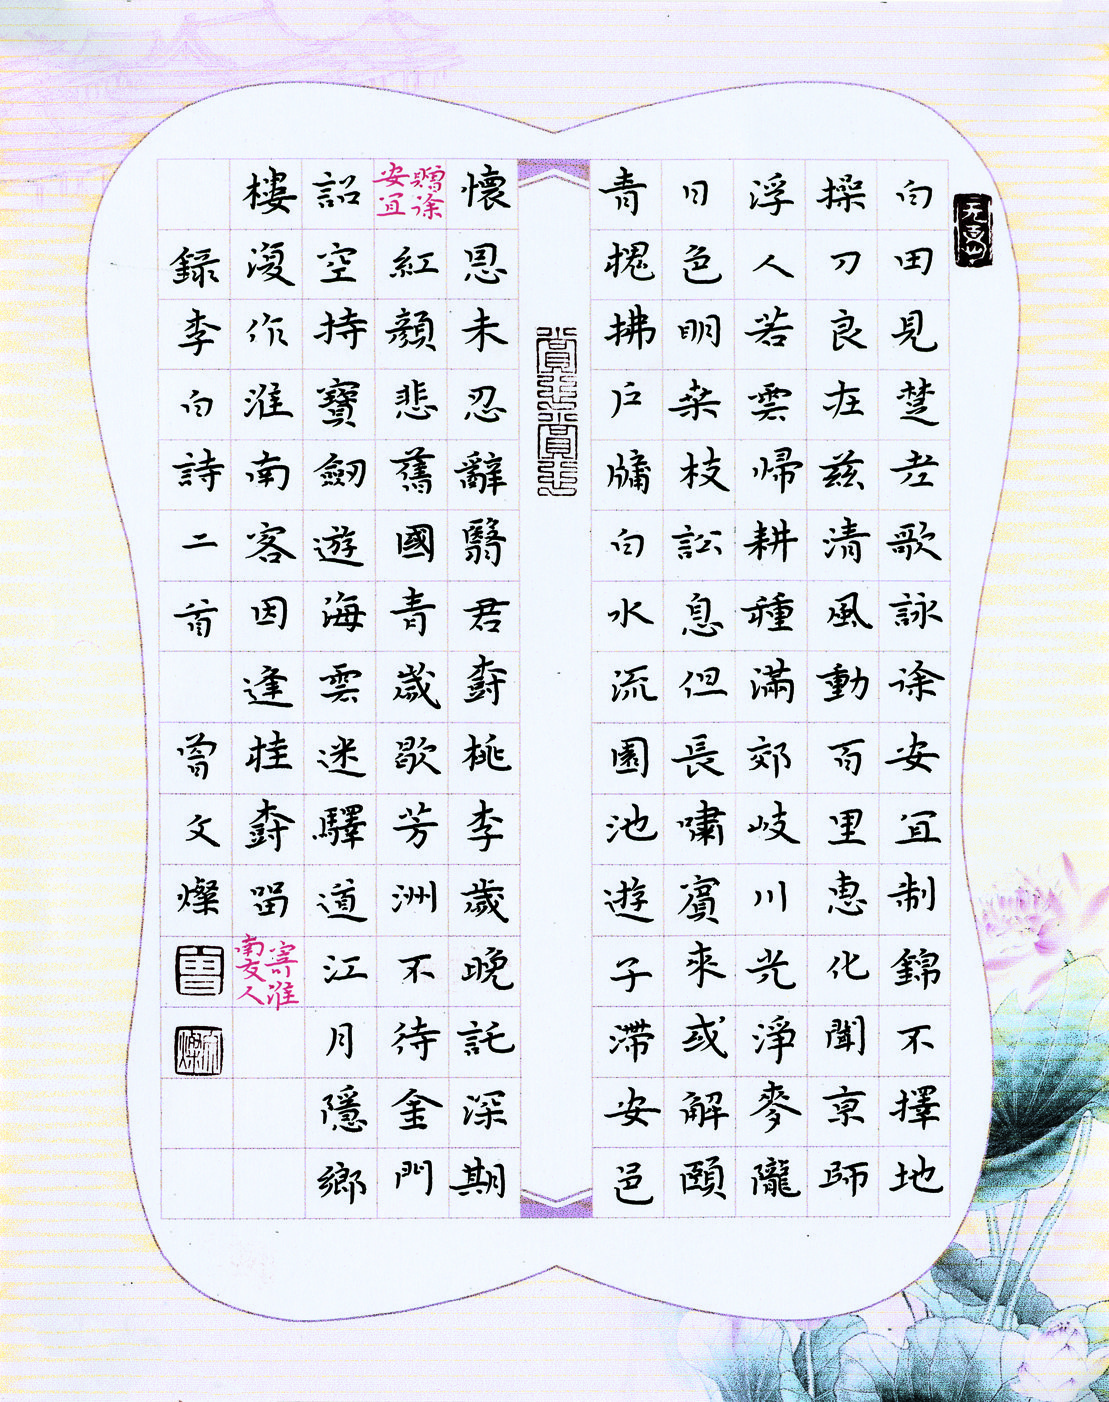 白田見楚老歌詠徐安宜制錦不擇地
操刀良在兹清風動百里惠化聞京師
浮人若雲歸耕種滿郊岐川光淨麥隴
日色明桑枝訟息但長嘯賓來或解頤
青槐拂户牖白水流園池遊子滯安邑
懷恩未忍辭翳君樹桃李歲晚託深期
贈徐安宜
紅顏悲舊國青歲歇芳洲不待金門
詔空持寶劒遊海雲迷驛道江月隱鄉
樓復作淮南客因逢桂樹留
寄淮南友人
錄李白詩二首 曾文燦